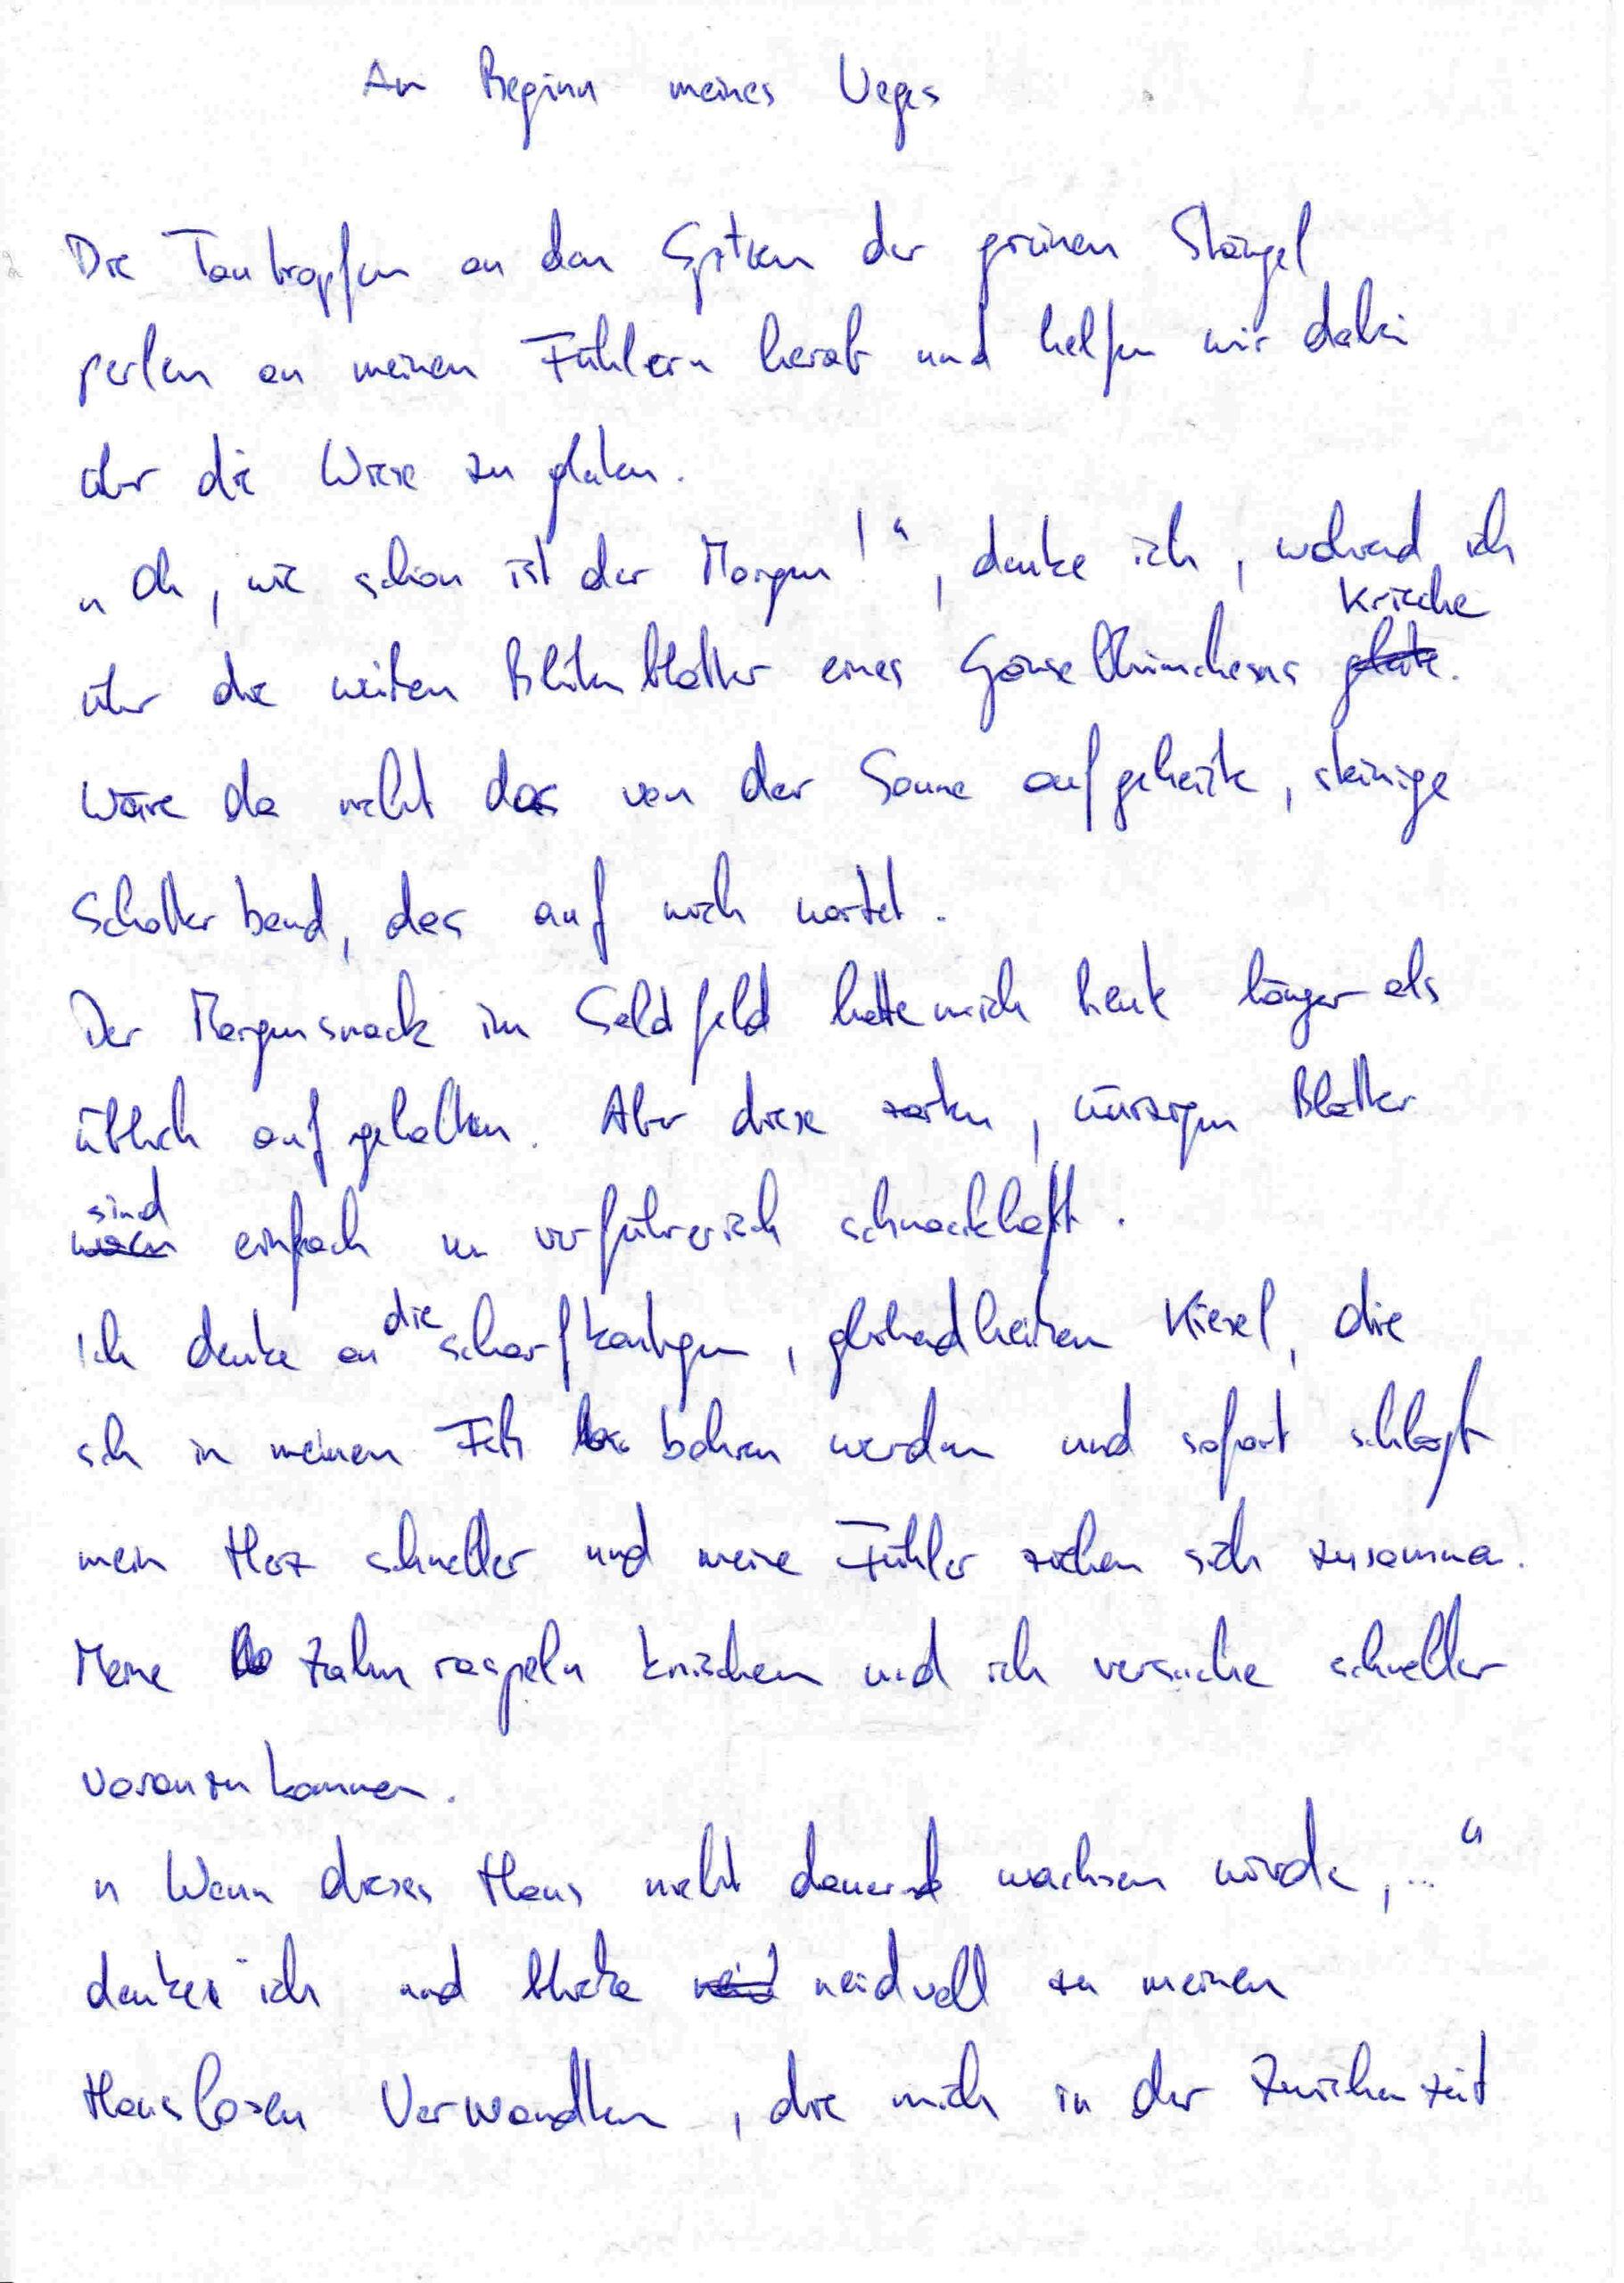 Am Beginn meines Weges
Die Tautropfen an den Spitzen der grünen Stängel
perlen an meinen Fühlern herab und helfen mir dabei
über die Wiese zu gleiten.
„Oh, wie schön ist der Morgen!“, denke ich, während ich
krieche
über die weiten Blütenblätter eines Gänseblümchens gleite.
Wäre da nicht das von der Sonne aufgeheizte, steinige
Schotterband, das auf mich wartet.
Der Morgensnack im Salatfeld hatte mich heute länger als
üblich aufgehalten. Aber diese zarten, würzigen Blätter
sind
waren einfach zu verführerisch schmackhaft.
die
Ich denke an scharfkantigen, glühendheißen Kiesel, die
sich in meinen Fuß bohren werden und sofort schlägt
mein Herz schneller und meine Fühler ziehen sich zusammen.
Meine Zahnraspeln knirschen und ich versuche schneller
voranzukommen.
„Wenn dieses Haus nicht dauernd wachsen würde,...“
denke ich und blicke neid neidvoll zu meinen
Hauslosen Verwandten, die mich in der Zwischenzeit